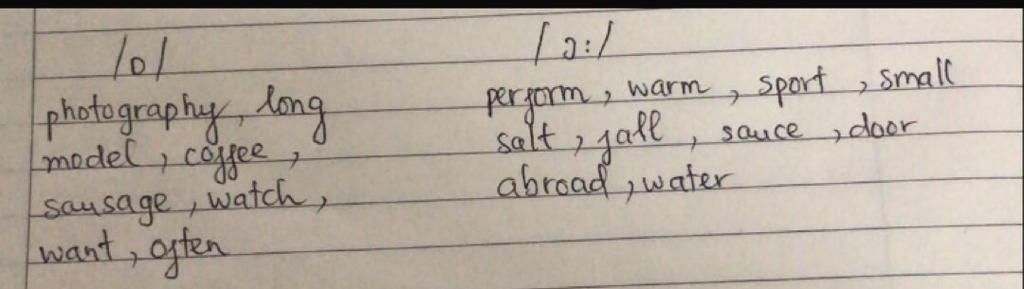 /ɒ/ /ɔ:/
photography, long perform, warm, sport, small
model, coffee, salt, fall, sauce, door
sausage, watch, abroad, water
want, often